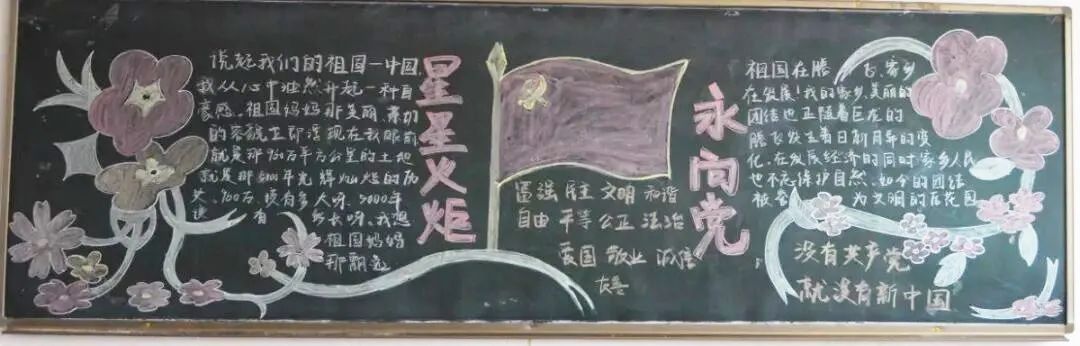 说起我们的祖国一中国,
我从心中油然升起一种自
豪感。祖国妈妈那美丽、亲切
的容貌立即浮现在我眼前
就是那960万平方公里的土地
就是那5000年光辉灿烂的历
史、960万,该有多大呀,5000年
该有多长呀,我想
祖国妈妈
那飘逸
星星火炬
富强 民主 文明 和谐
自由 平等 公正 法治
爱国 敬业 诚信
友善
永向党
祖国在腾飞、家乡
在发展,我的家乡,美丽的
团结也正随着巨龙的
腾飞发生着日新月异的变
化,在发展经济的同时家乡人民
也不忘保护自然、如今的团结
被 为文明的后花园
没有共产党
就没有新中国